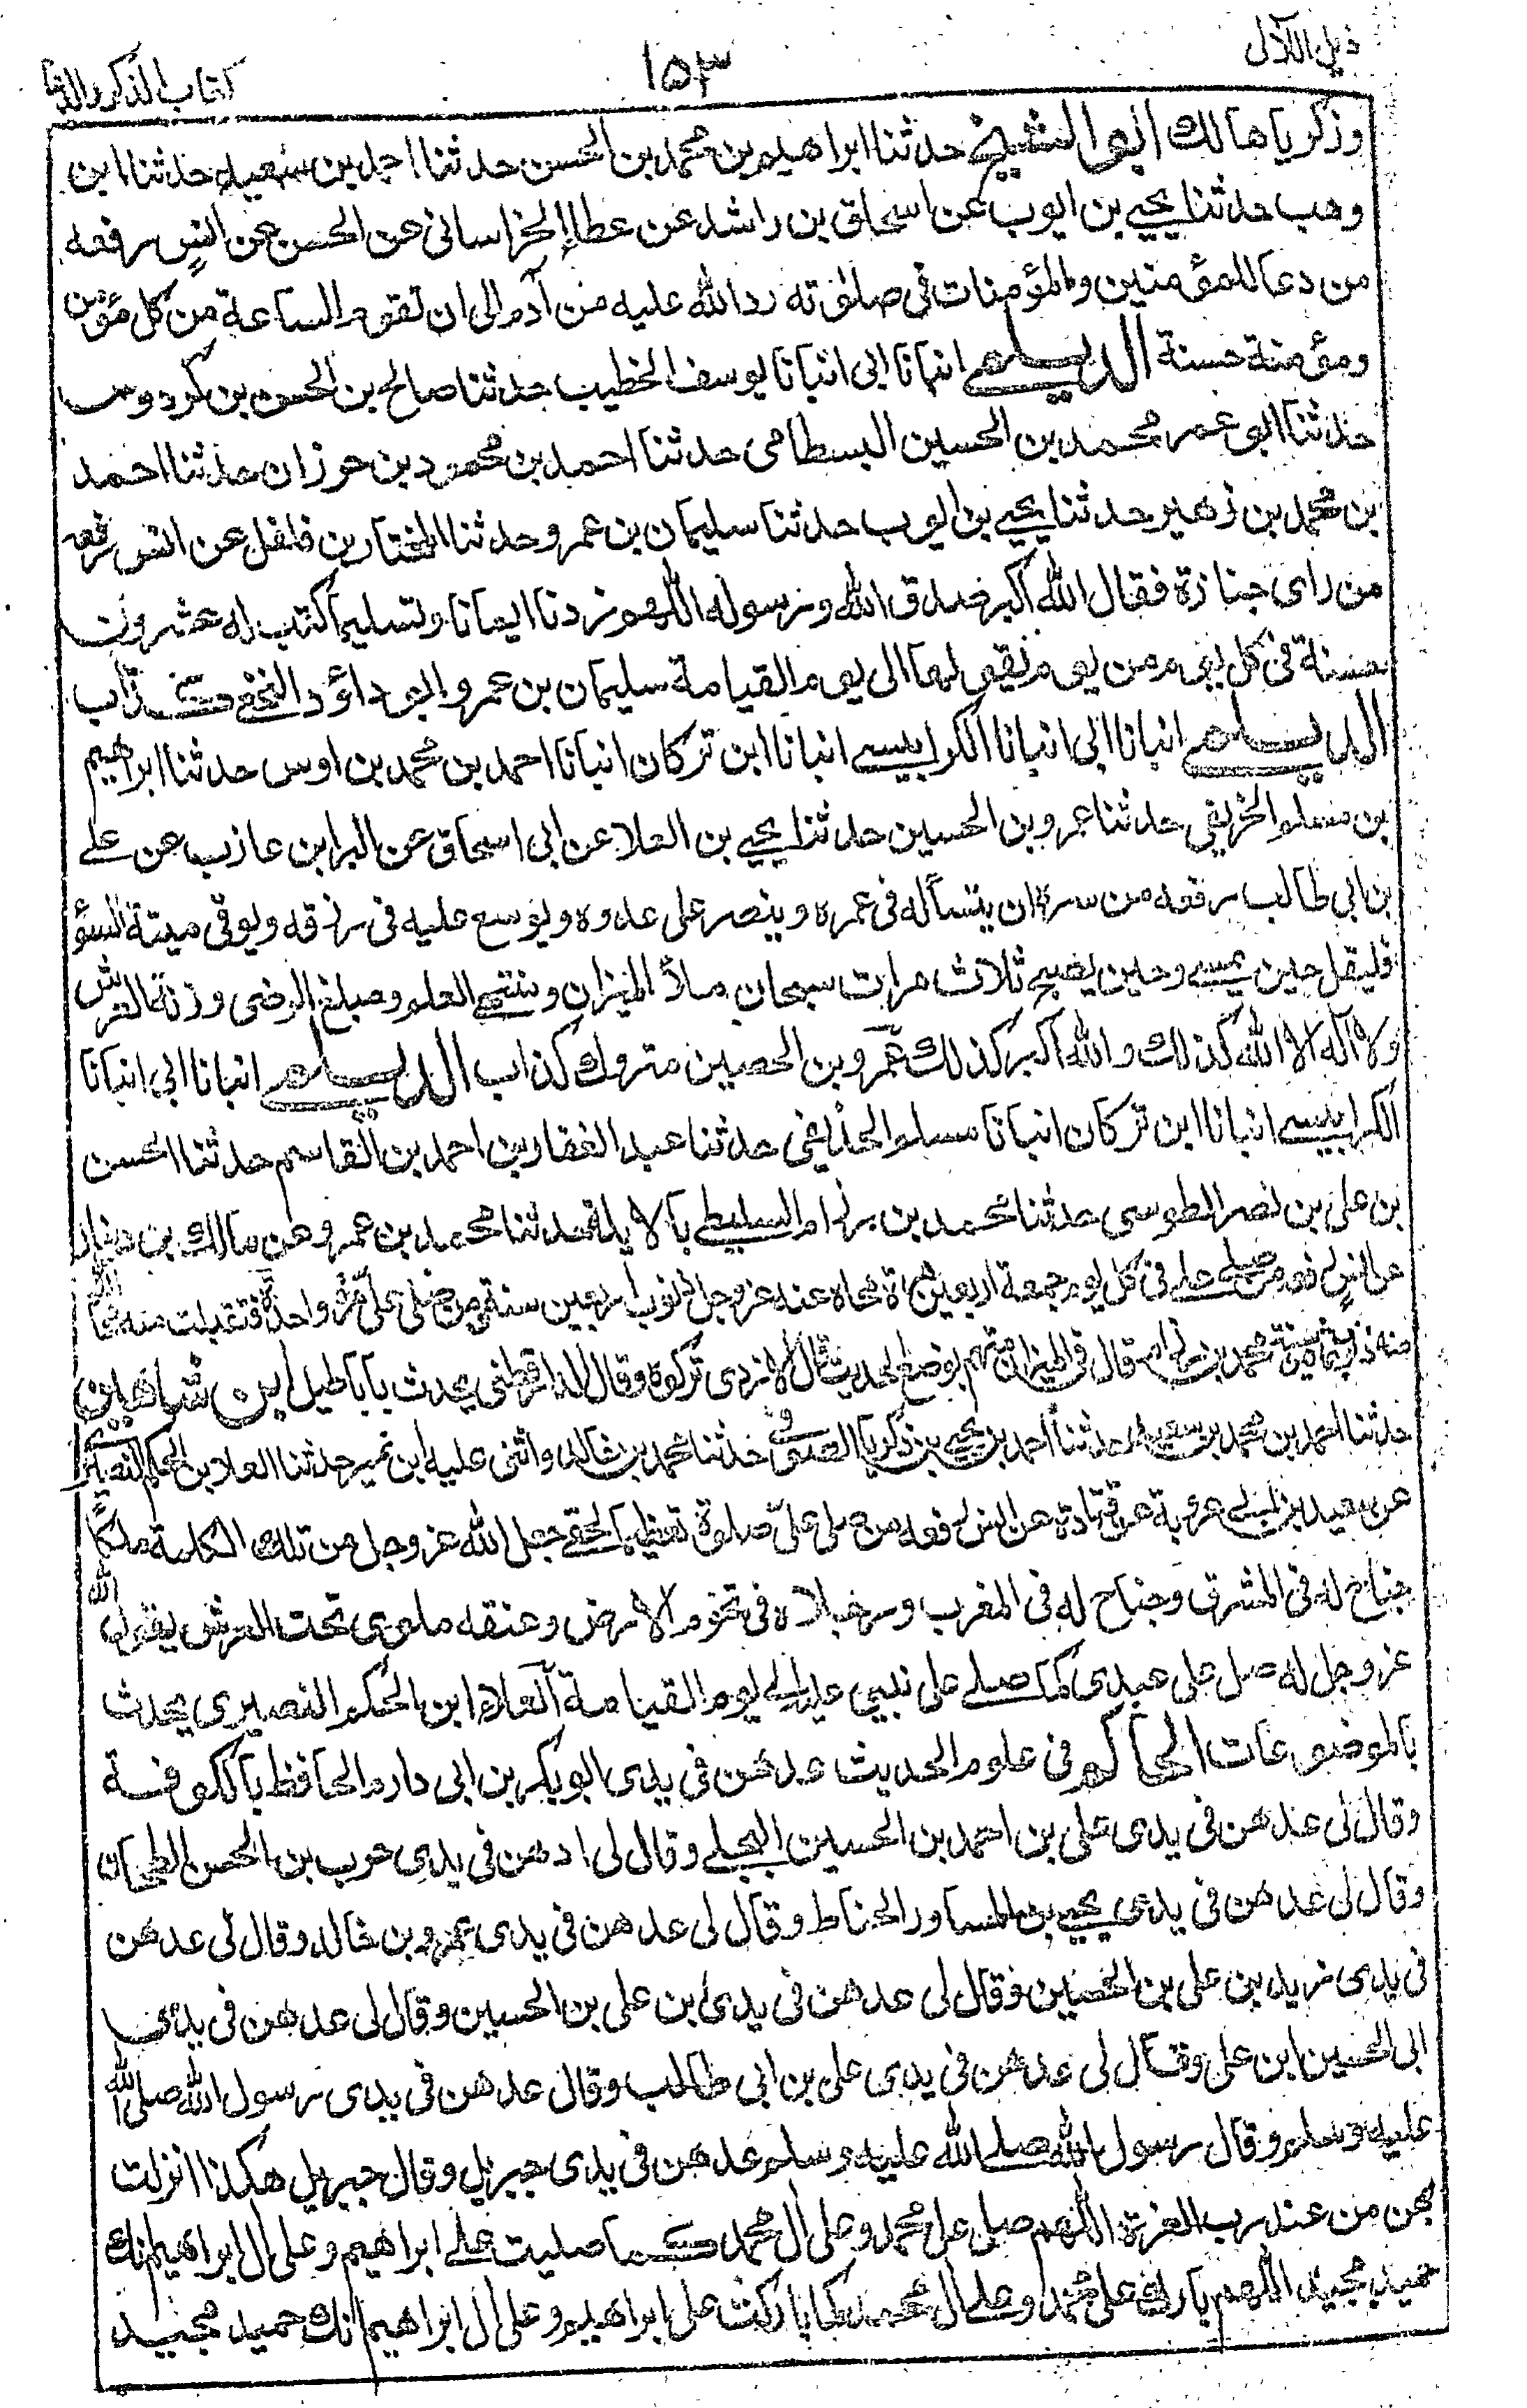 ذيل اللآلى
١٥٣
كتاب الذكر والدعا
وزكريا هالك ابو الشيخ حدثنا ابراهيم بن محمد بن الحسن حدثنا احمد بن سعيد حدثنا ابن
وهب حدثنا يحيے بن ايوب عن اسحاق بن راشد عن عطا الخراسانى عن الحسن عن انس رفعه
من دعا للمؤمنين والمؤمنات فى صلوته رد الله عليه من آدم الى ان تقوم الساعة من كل مؤمن
ومؤمنة حسنة الديلمے انبانا ابى انبانا يوسف الخطيب حدثنا صالح بن الحسن بن كردوس
حدثنا ابو عمر محمد بن الحسين البسطامى حدثنا احمد بن محمود بن حوزان حدثنا احمد
بن محمد بن زهير حدثنا يحيے بن ايوب حدثنا سليمان بن عمرو حدثنا المختار بن فلفل عن انس رفعه
من راى جنازة فقال الله اكبر صدق الله ورسوله اللهم زدنا ايمانا وتسليما كتب له عشرون
حسنة فى كل يوم من يوم يقولها الى يوم القيامة سليمان بن عمرو ابو داؤد النخعے كذاب
الديلمے انبانا ابى انبانا الكرابيسے انبانا ابن تركان انبانا احمد بن محمد بن اوس حدثنا ابراهيم
بن مسلم الخريقى حدثنا عمرو بن الحسين حدثنا يحيے بن العلا عن ابى اسحاق عن البرا بن عازب عن علے
بن ابى طالب رفعه من سره ان ينسأ له فى عمره وينصر على عدوه ويوسع عليه فى رزقه ويوقى ميتة السؤ
فليقل حين يمسے وحين يصبح ثلاث مرات سبحان ملأ الميزان ومنتهے العلم ومبلغ الرضى وزنة العرش
ولا آله الا الله كذلك والله اكبر كذلك عمرو بن الحصين متروك كذاب الديلمے انبانا ابى انبانا
الكرابيسے انبانا ابن تركان انبانا مسلم الحذيفى حدثنا عبد الغفار بن احمد بن القاسم حدثنا الحسن
بن على بن نصر الطوسى حدثنا محمد بن رزام السليطے بالايلة حدثنا محمد بن عمرو عن مالك بن دينار
عن انس رفعه من صلے علے فى كل يوم جمعة اربعين مرة محاه عنه عز وجل ذنوب اربعين سنة ومن صلى على مرة واحدة فتقبلت منه محا الله
منه ذنوب ثمانين سنة محمد بن رزام قال فى الميزان متهم بوضع الحديث قال الازدى تركوه وقال الدارقطنى يحدث باباطيل ابن شاهين
حدثنا احمد بن محمد بن سعيد حدثنا احمد بن يحيے بن زكريا الصوفى حدثنا محمد بن خالد واثنى عليه ابن نمير حدثنا العلا بن الحكم النصيرى
عن سعيد بن ابے عروبة عن قتادة عن انس رفعه من صلى علىّ صلوة تعظيما لحقے جعل الله عز وجل من تلك الكلمة ملكًا
جناح له فى المشرق وجناح له فى المغرب ورجلاه فى تخوم الارض وعنقه ملوى تحت العرش يقول الله
عز وجل له صل على عبدى كما صلے على نبيى عليه الے يوم القيامة العلاء ابن الحكم النصيرى يحدث
بالموضوعات الحاكم فى علوم الحديث عدهن فى يدى ابو بكر بن ابى دارم الحافظ بالكوفة
وقال لى عدهن فى يدى على بن احمد بن الحسين البجلے وقال لى ا دهن فى يدى حرب بن الحسن الطحان
وقال لى عدهن فى يدى يحيے بن المساور الحناط وقال لى عدهن فى يدى عمرو بن خالد وقال لى عدهن
فى يدى زيد بن على بن الحسين وقال لى عدهن فى يدى ابن على بن الحسين وقال لى عدهن فى يدى
ابى الحسين ابن على وقال لى عدهن فى يدى على بن ابى طالب وقال عدهن فى يدى رسول الله صلى الله
عليه وسلم وقال رسول الله صلے الله عليه وسلم عدهن فى يدى جبريل وقال جبريل هكذا انزلت
بهن من عند رب العزة اللهم صل على محمد وعلى ال محمد كما صليت علے ابراهيم وعلى ال ابراهيم انك
حميد مجيد اللهم بارك على محمد وعلے ال محمد كما باركت على ابراهيم وعلى ال ابراهيم انك حميد مجيد